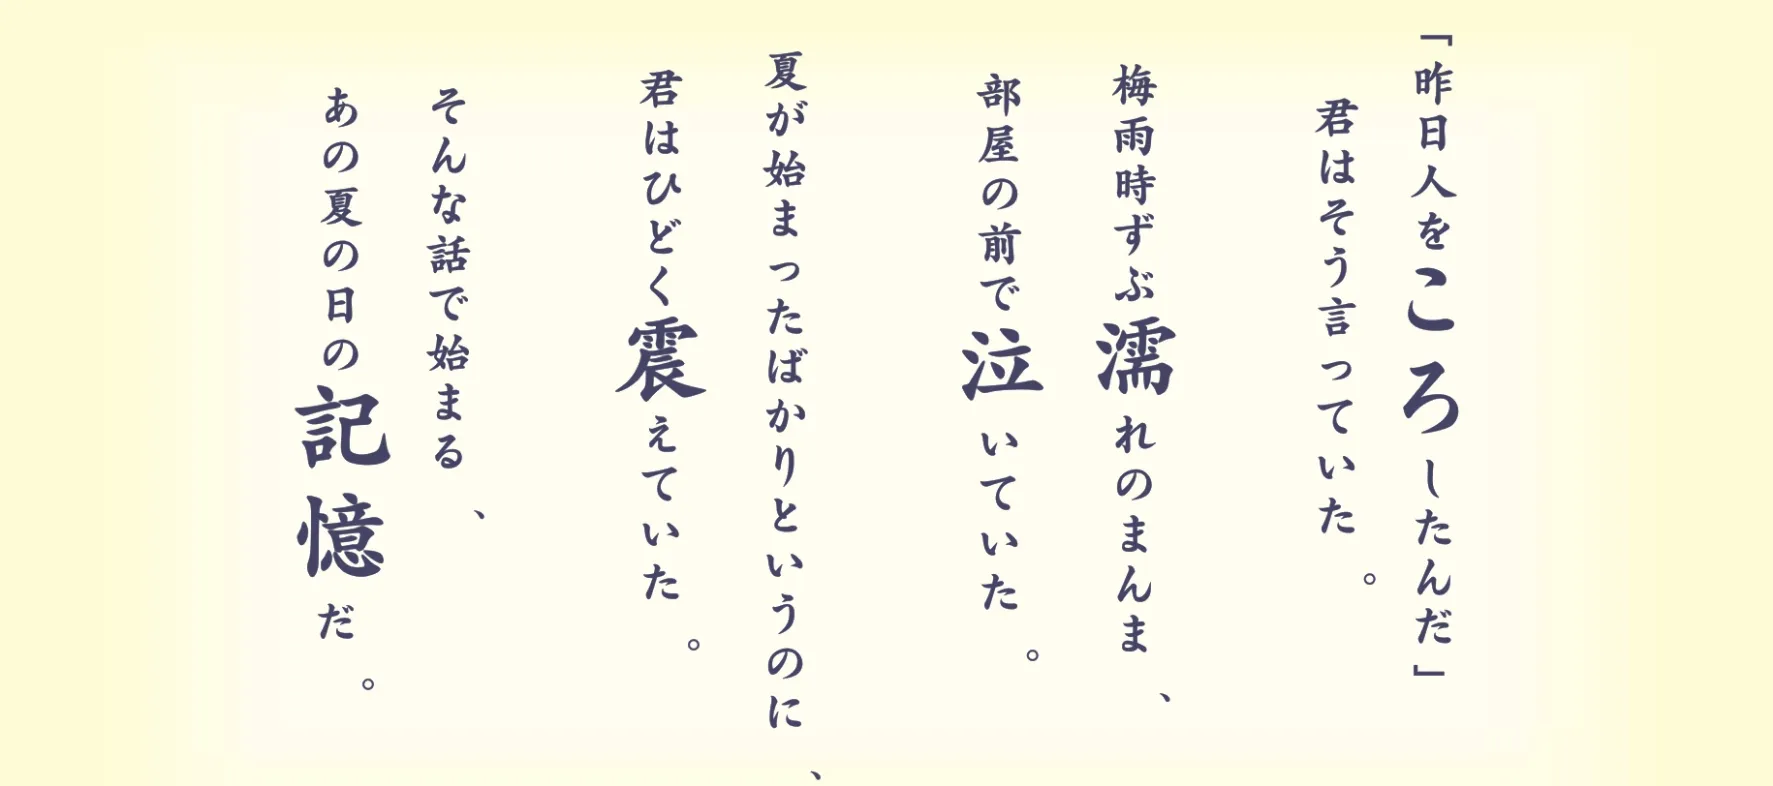 「昨日人をころしたんだ」
君はそう言っていた。
梅雨時ずぶ濡れのまんま、
部屋の前で泣いていた。
夏が始まったばかりというのに、
君はひどく震えていた。
そんな話で始まる、
あの夏の日の記憶だ。